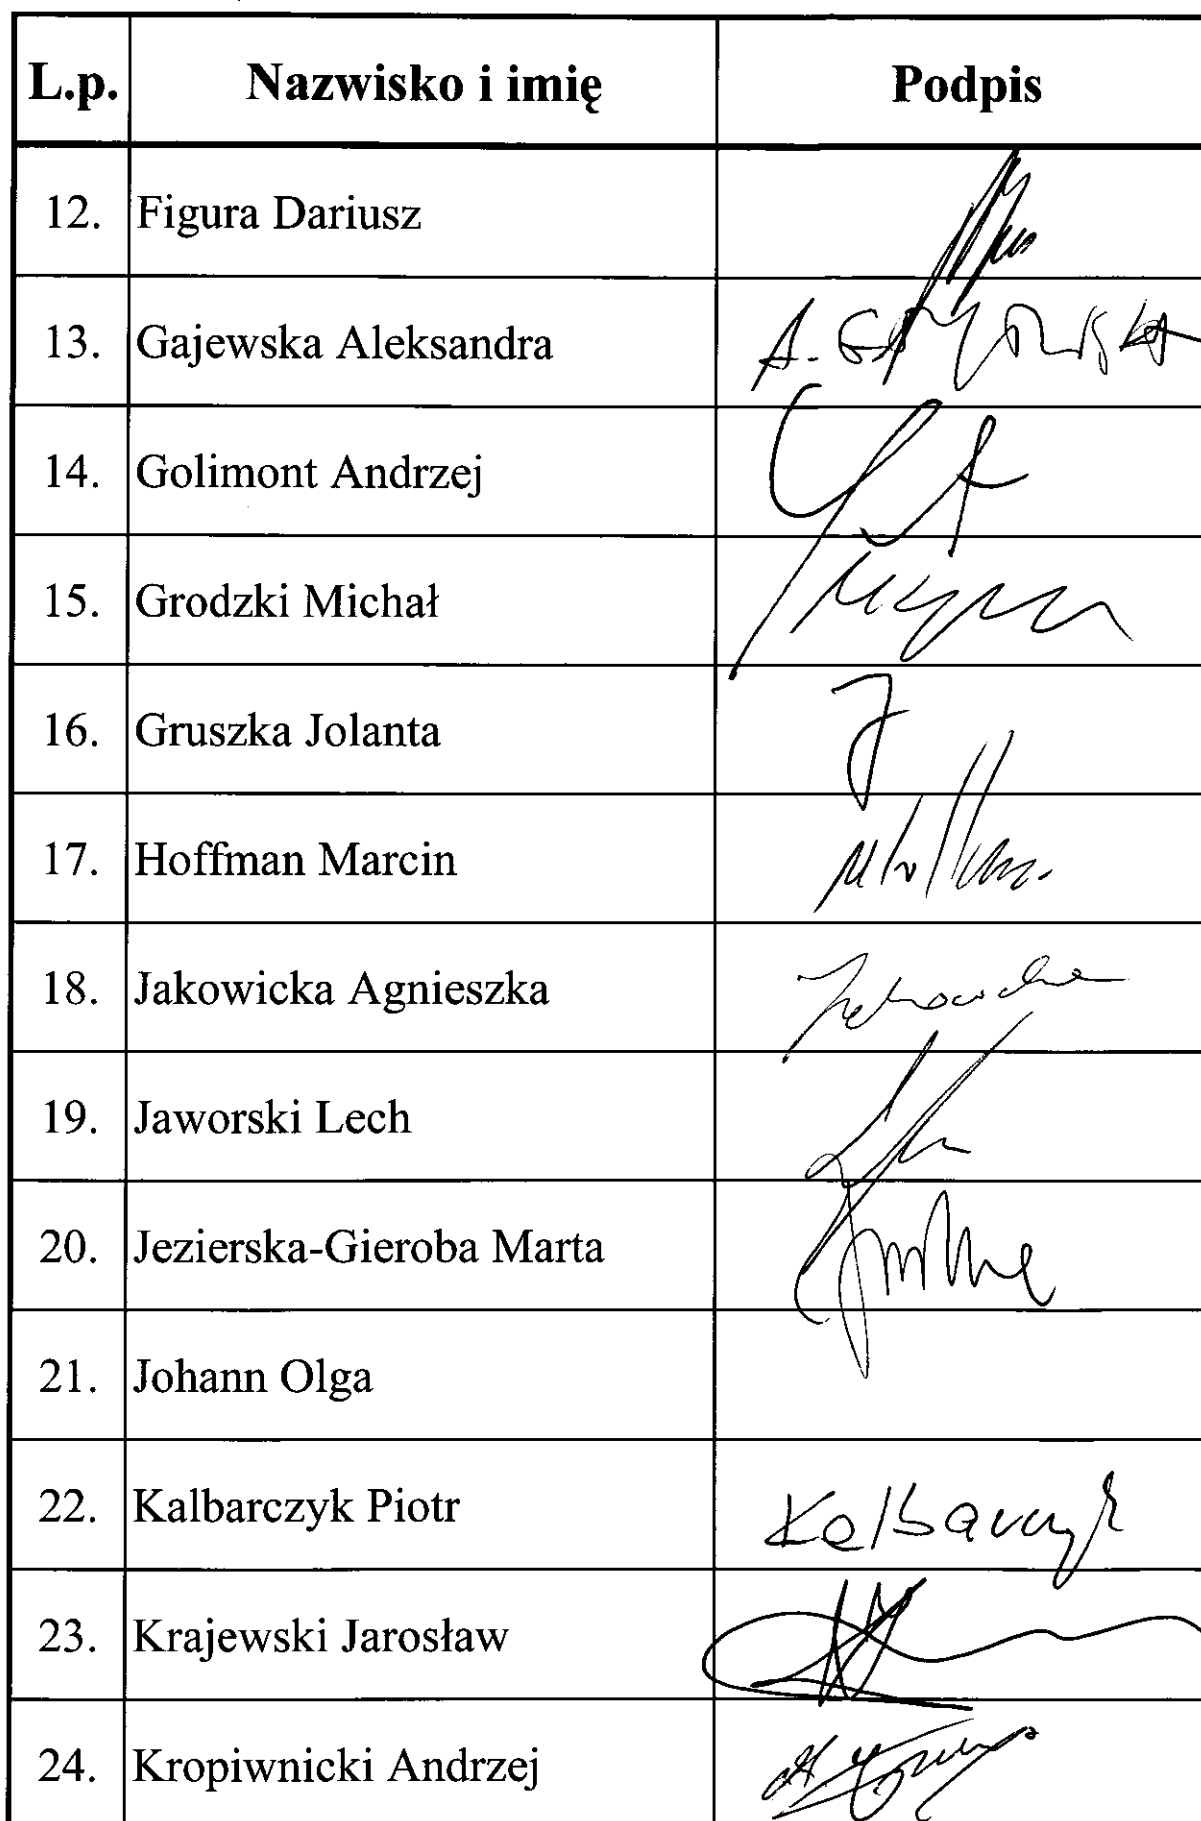 L.p. Nazwisko i imię Podpis
12. Figura Dariusz
13. Gajewska Aleksandra A. Gajewska
14. Golimont Andrzej
15. Grodzki Michał
16. Gruszka Jolanta
17. Hoffman Marcin
18. Jakowicka Agnieszka Jakowicka
19. Jaworski Lech
20. Jezierska-Gieroba Marta
21. Johann Olga
22. Kalbarczyk Piotr Kalbarczyk
23. Krajewski Jarosław
24. Kropiwnicki Andrzej